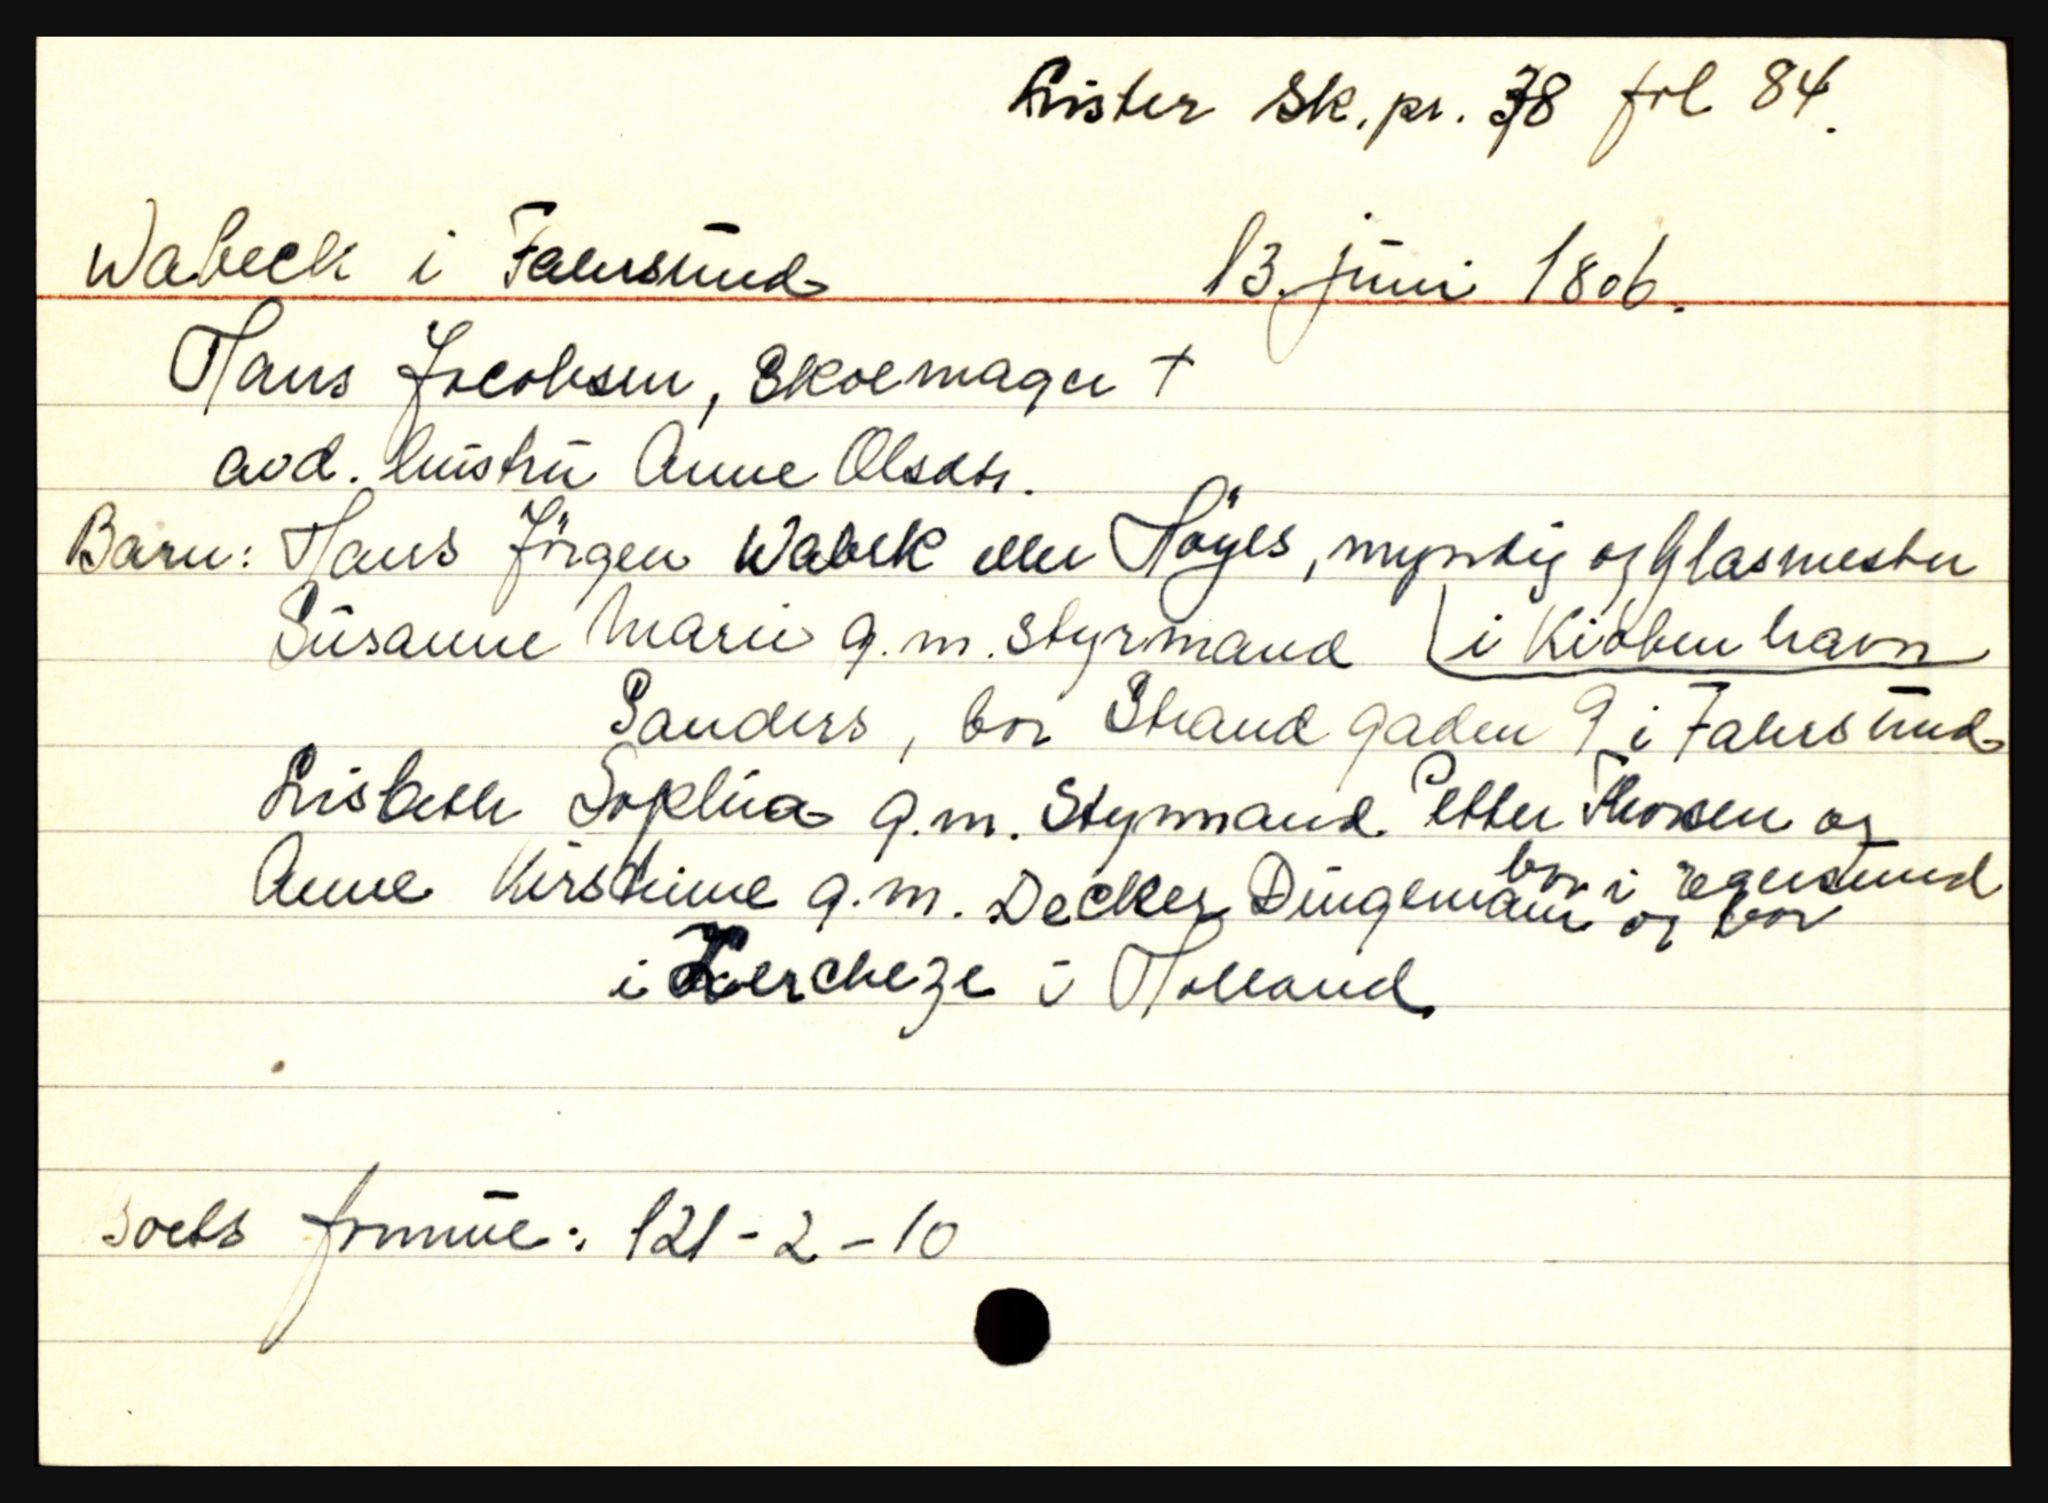 Lister Sk. pr. 38 fol 84.
Wabeck i Fahrsund 13. juni 1806.
Hans Jacobsen, Skoemager +
avd. hustru Anne Olsdtr.
Barn: Hans Jörgen Wabek eller Höyes, myndig og Glasmester
i Kiöbenhavn
Susanne Marie g.m. Styrmand
Sanders, bor Strandgaden 9 i Fahrsund
Lisbeth Sophia g.m. Styrmand Petter Thorsen og
bor i Egersund
Anne Kirstine g.m. Decker Dingemann og bor
i Zercheze i Holland.
Boets formue: 121-2-10